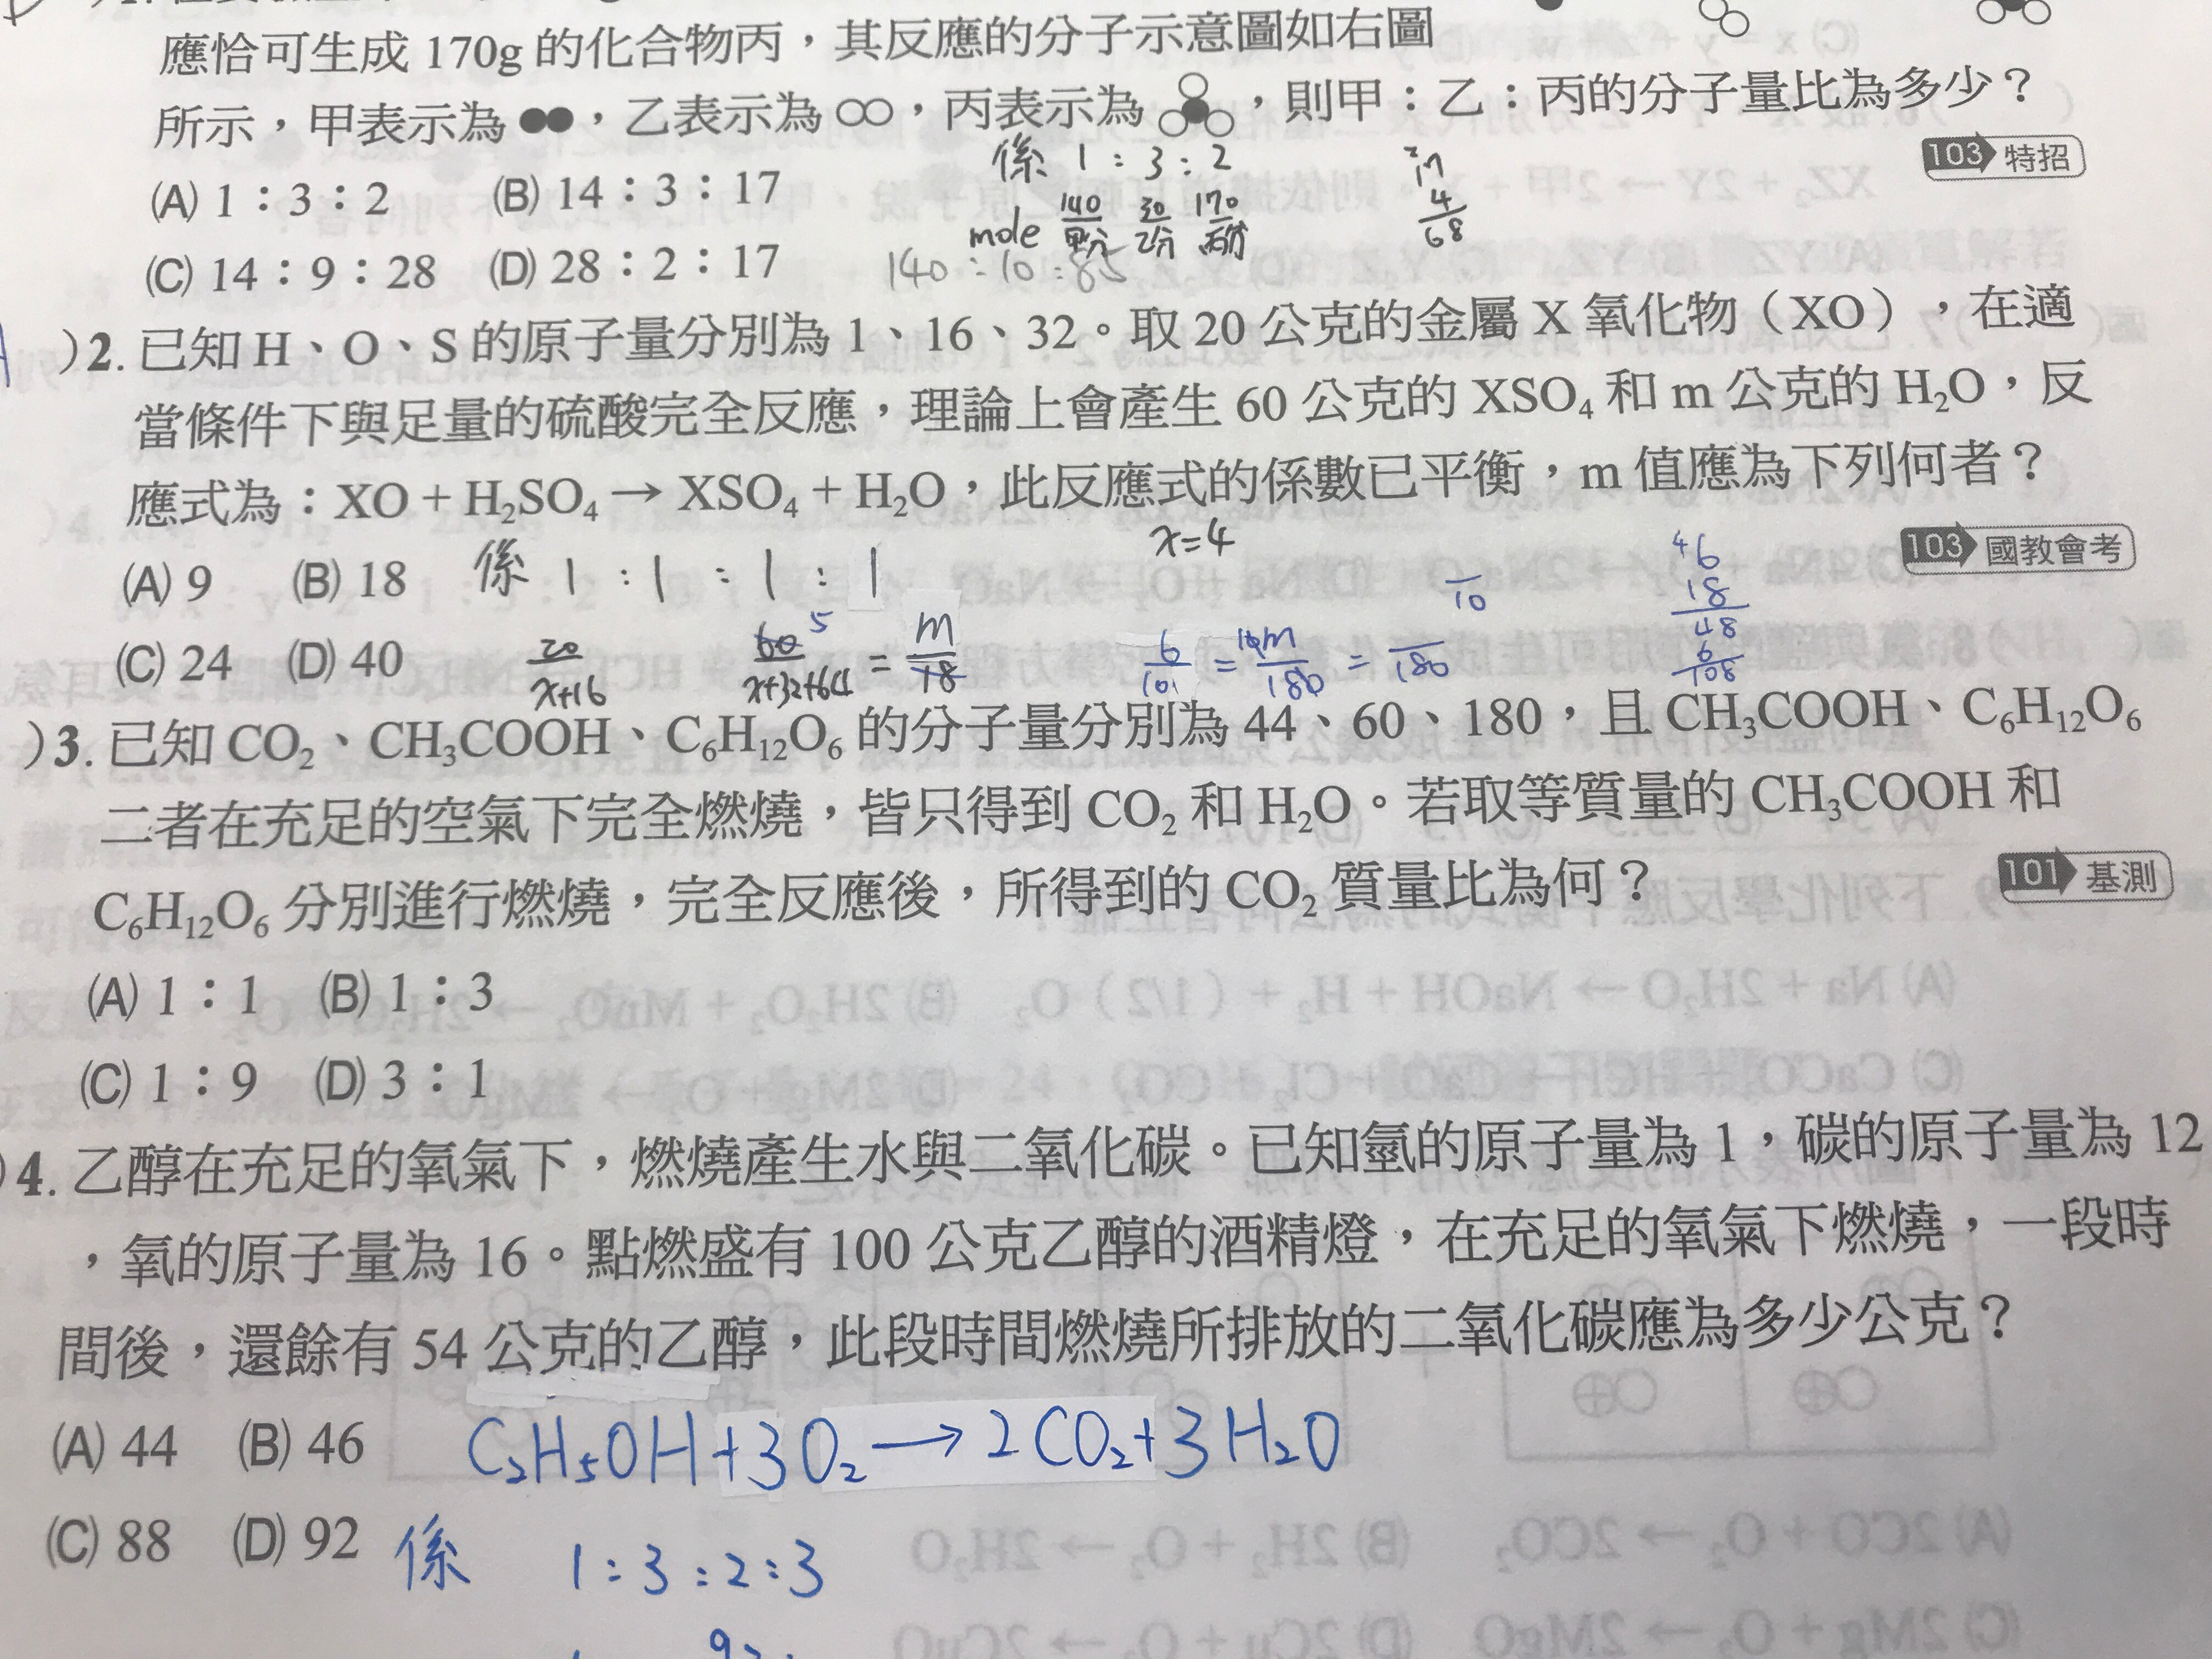 應恰可生成 170g 的化合物丙，其反應的分子示意圖如右圖
所示，甲表示為●●，乙表示為○○，丙表示為，則甲：乙：丙的分子量比為多少？
103 特招
係 1 : 3 : 2
(A) 1：3：2 (B) 14：3：17
mole 140/甲分 30/乙分 170/丙分
17
4
68
(C) 14：9：28 (D) 28：2：17
140 : 10 : 85
)2. 已知 H、O、S 的原子量分別為 1、16、32。取 20 公克的金屬 X 氧化物（XO），在適
當條件下與足量的硫酸完全反應，理論上會產生 60 公克的 XSO₄ 和 m 公克的 H₂O，反
應式為：XO + H₂SO₄ → XSO₄ + H₂O，此反應式的係數已平衡，m 值應為下列何者？
103 國教會考
x=4
(A) 9 (B) 18 係 1 : 1 : 1 : 1
(C) 24 (D) 40 20/x+16 60/x+32+64 = m/18
5
6/10 = m/180 = /180
10
46
18
48
6
108
)3. 已知 CO₂、CH₃COOH、C₆H₁₂O₆ 的分子量分別為 44、60、180，且 CH₃COOH、C₆H₁₂O₆
二者在充足的空氣下完全燃燒，皆只得到 CO₂ 和 H₂O。若取等質量的 CH₃COOH 和
C₆H₁₂O₆ 分別進行燃燒，完全反應後，所得到的 CO₂ 質量比為何？
101 基測
(A) 1：1 (B) 1：3
(C) 1：9 (D) 3：1
)4. 乙醇在充足的氧氣下，燃燒產生水與二氧化碳。已知氫的原子量為 1，碳的原子量為 12
，氧的原子量為 16。點燃盛有 100 公克乙醇的酒精燈，在充足的氧氣下燃燒，一段時
間後，還餘有 54 公克的乙醇，此段時間燃燒所排放的二氧化碳應為多少公克？
(A) 44 (B) 46 C₂H₅OH+3O₂→2CO₂+3H₂O
(C) 88 (D) 92 係 1 : 3 : 2 : 3